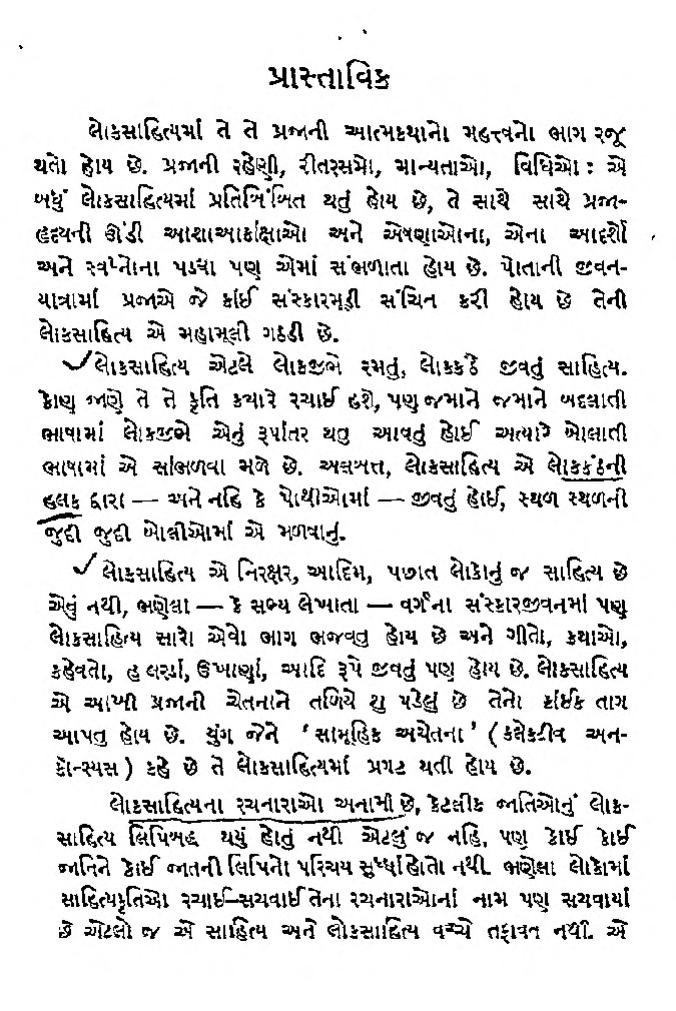 પ્રાસ્તાવિક
લોકસાહિત્યમાં તે તે પ્રજાની આત્મકથાનો મહત્ત્વનો ભાગ રજૂ
થતો હોય છે. પ્રજાની રહેણી, રીતરસમો, માન્યતાઓ, વિધિઓ : એ
બધું લોકસાહિત્યમાં પ્રતિબિંબિત થતું હોય છે, તે સાથે સાથે પ્રજા-
હૃદયની ઊંડી આશાઆકાંક્ષાઓ અને એષણાઓના, એના આદર્શો
અને સ્વપ્નોના પડઘા પણ એમાં સંભળાતા હોય છે. પોતાની જીવન-
યાત્રામાં પ્રજાએ જે કાંઈ સંસ્કારમૂડી સંચિન કરી હોય છે તેની
લોકસાહિત્ય એ મહામૂલી ગઠડી છે.
લોકસાહિત્ય એટલે લોકજીભે રમતું, લોકકંઠે જીવતું સાહિત્ય.
કોણ જાણે તે તે કૃતિ ક્યારે રચાઈ હશે, પણ જમાને જમાને બદલાતી
ભાષામાં લોકજીભે એનું રૂપાંતર થતુ આવતું હોઈ અત્યારે બોલાતી
ભાષામાં એ સાંભળવા મળે છે. અલબત્ત, લોકસાહિત્ય એ લોકકંઠની
હલક દ્વારા — અને નહિ કે પોથીઓમાં — જીવતું હોઈ, સ્થળ સ્થળની
જુદી જુદી બોલીઓમાં એ મળવાનું.
લોકસાહિત્ય એ નિરક્ષર, આદિમ, પછાત લોકોનું જ સાહિત્ય છે
એવું નથી, ભણેલા — કે સભ્ય લેખાતા — વર્ગના સંસ્કારજીવનમાં પણ
લોકસાહિત્ય સારો એવો ભાગ ભજવતુ હોય છે અને ગીતો, કથાઓ,
કહેવતો, હાલરડાં, ઉખાણાં, આદિ રૂપે જીવતું પણ હોય છે. લોકસાહિત્ય
એ આખી પ્રજાની ચેતનાને તળિયે શુ પડેલું છે તેનો કાંઈક તાગ
આપતુ હોય છે. યુંગ જેને ‘સામૂહિક અચેતના’ (કલેક્ટીવ અન-
કૉન્સ્યસ) કહે છે તે લોકસાહિત્યમાં પ્રગટ થતી હોય છે.
લોકસાહિત્યના રચનારાઓ અનામી છે, કેટલીક જાતિઓનું લોક-
સાહિત્ય લિપિબદ્ધ થયું હોતું નથી એટલું જ નહિ, પણ કોઈ કોઈ
જાતિને કોઈ જાતની લિપિનો પરિચય સુધ્ધાં હોતો નથી. ભણેલા લોકોમાં
સાહિત્યકૃતિઓ રચાઈ–સચવાઈ તેના રચનારાઓનાં નામ પણ સચવાયાં
છે એટલો જ એ સાહિત્ય અને લોકસાહિત્ય વચ્ચે તફાવત નથી. એ